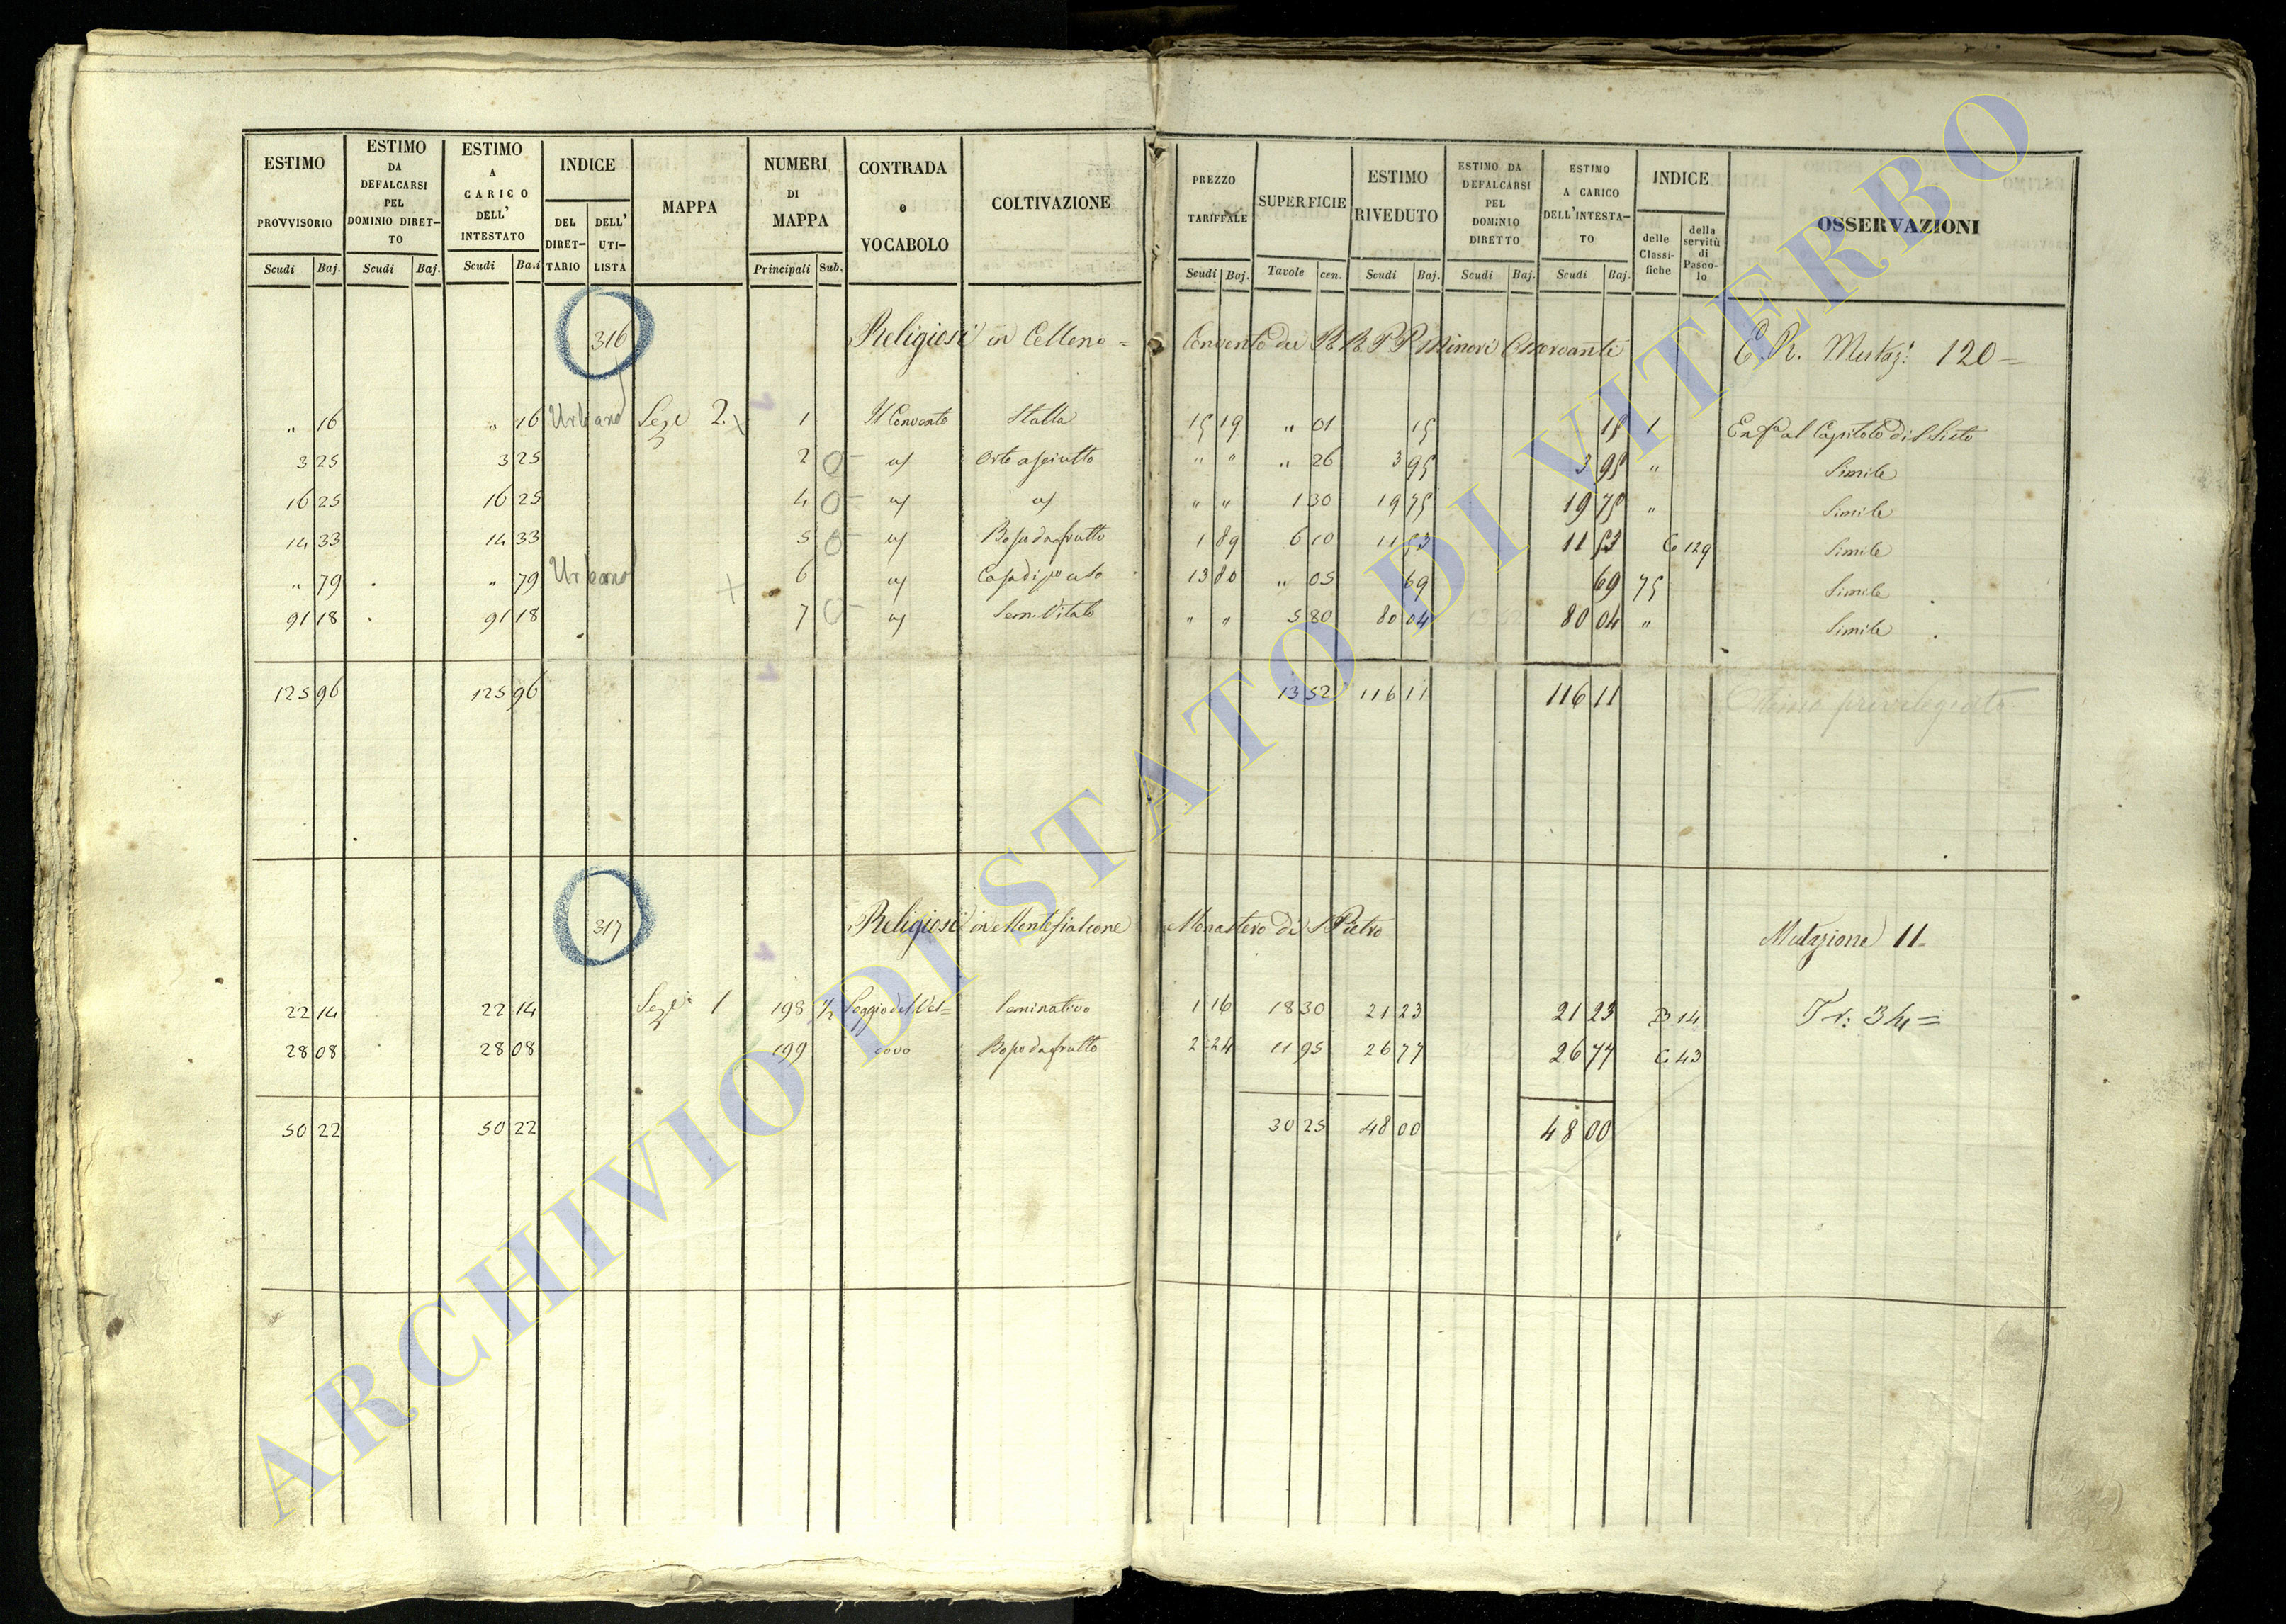 ESTIMO PROVVISORIO | ESTIMO DA DEFALCARSI PEL DOMINIO DIRETTO | ESTIMO A CARICO DELL' INTESTATO | INDICE | MAPPA | NUMERI DI MAPPA | CONTRADA o VOCABOLO | COLTIVAZIONE | PREZZO TARIFFALE | SUPERFICIE | ESTIMO RIVEDUTO | ESTIMO DA DEFALCARSI PEL DOMINIO DIRETTO | ESTIMO A CARICO DELL'INTESTATO | INDICE | OSSERVAZIONI
Scudi | Baj. | Scudi | Baj. | Scudi | Ba.i | DEL DIRETTARIO | DELL' UTILISTA | Principali | Sub. | Scudi | Baj. | Tavole | cen. | Scudi | Baj. | Scudi | Baj. | Scudi | Baj. | delle Classifiche | della servitù di Pascolo
316 Religiosi in Celleno = Convento dei RR. PP Minori Osservanti C. R. Mutaz: 120 =
" 16 " 16 Urbano Sez.e 2. 1 Il Convento Stalla 15 19 " 01 15 15 1 Enfa al Capitolo di S Sisto
3 25 3 25 2 0 a/ Orto asciutto " " " 26 3 95 3 95 " Simile
16 25 16 25 4 0 a/ a/ " " 1 30 19 75 19 75 " Simile
14 33 14 33 5 0 a/ Bosco da frutto 1 89 6 10 11 53 11 53 C 129 Simile
" 79 " 79 Urbano 6 a/ Casa di po uso 13 80 " 05 69 69 75 Simile
91 18 91 18 7 0 a/ Sem. Vitato " " 5 80 80 04 80 04 " Simile
125 96 125 96 13 52 116 11 116 11 Estimo privilegiato
317 Religiosi in Montefiascone Monastero di S Pietro Mutazione 11=
22 14 22 14 Sez.e 1 198 1/2 Poggio del Ves= Seminativo 1 16 18 30 21 23 21 23 B 14 Tr: 34=
28 08 28 08 199 covo Bosco da frutto 2 24 11 95 26 77 26 77 C 43
50 22 50 22 30 25 48 00 48 00
ARCHIVIO DI STATO DI VITERBO